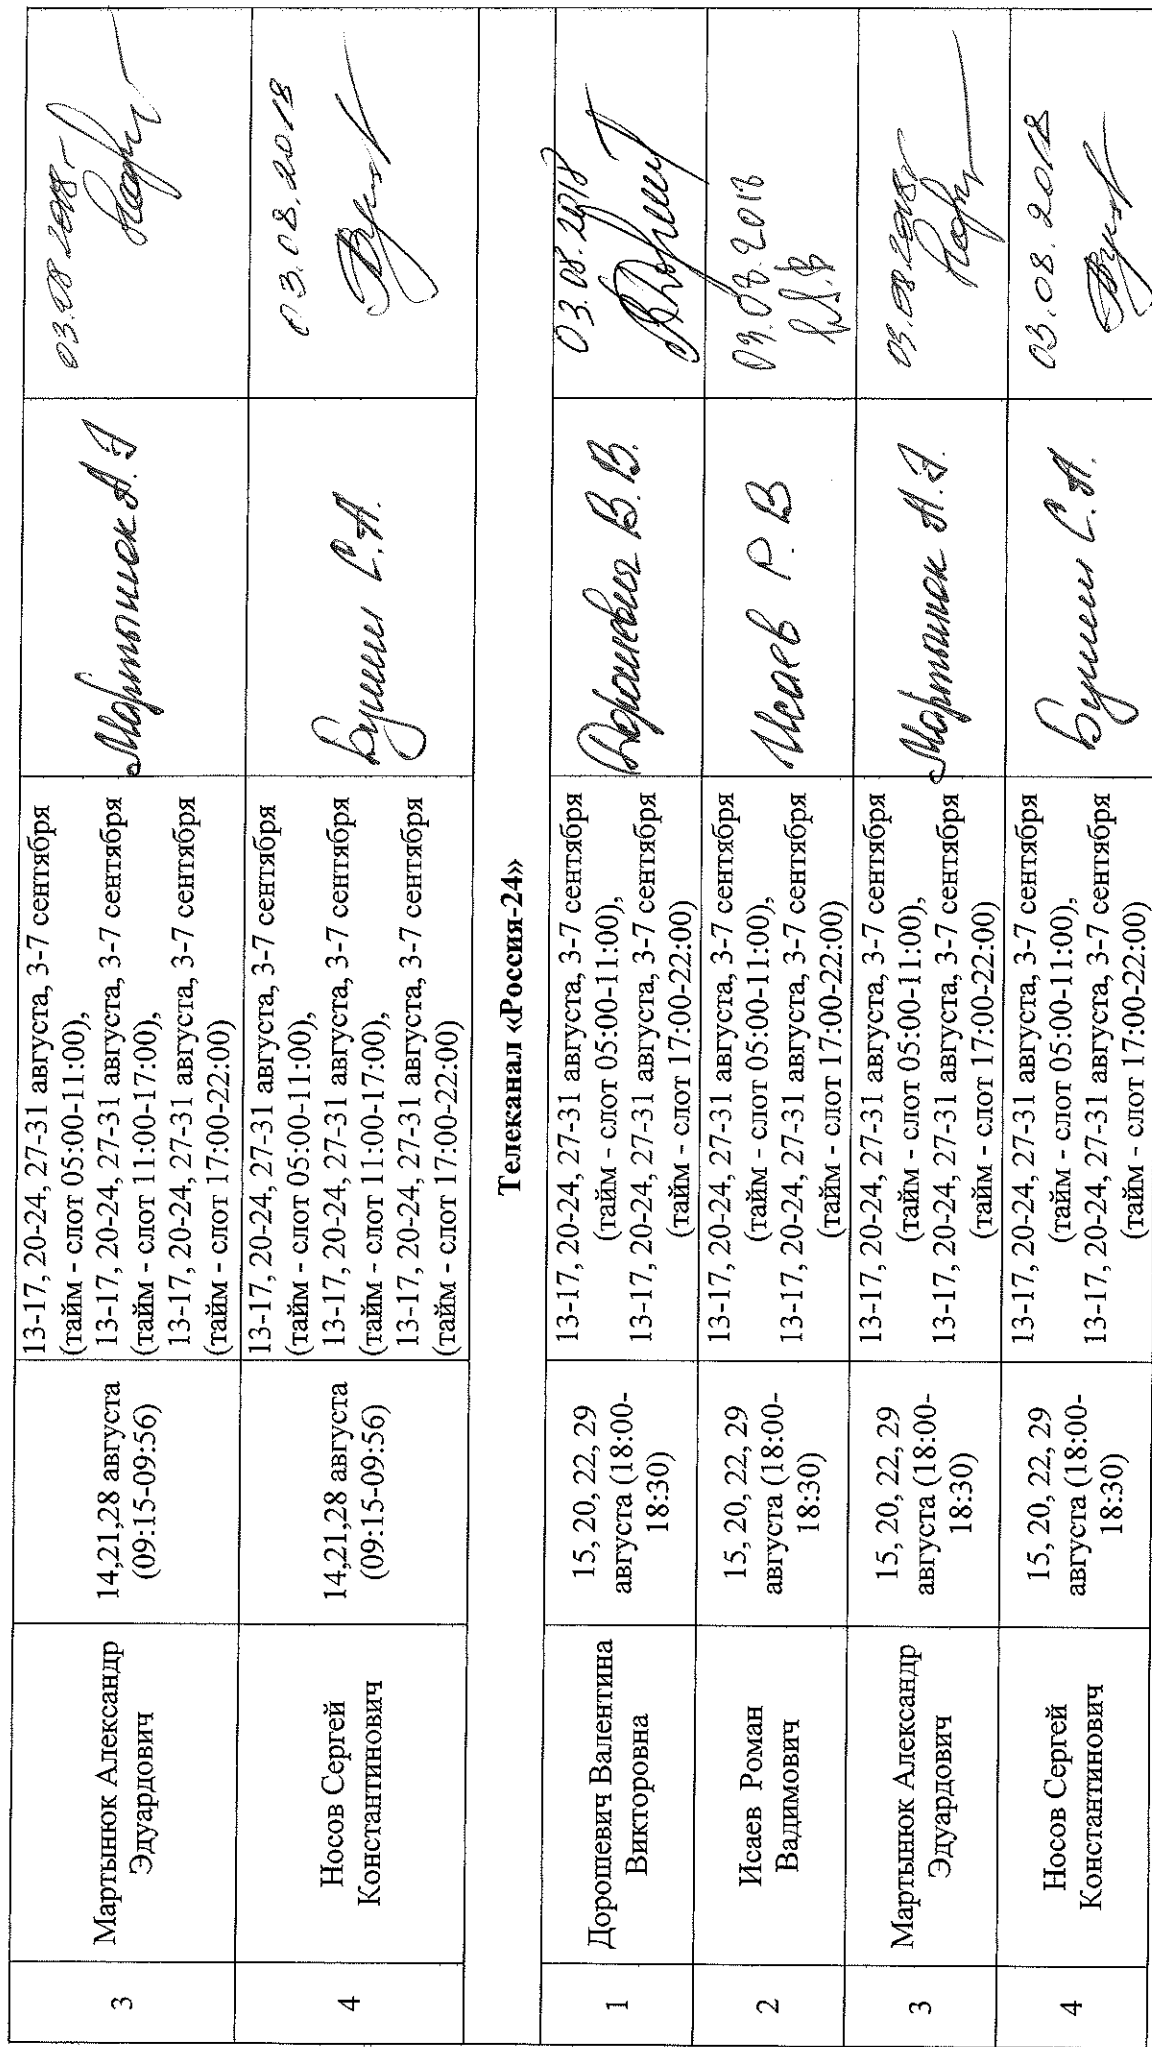 3
Мартынюк Александр
Эдуардович
14,21,28 августа
(09:15-09:56)
13-17, 20-24, 27-31 августа, 3-7 сентября
(тайм - слот 05:00-11:00),
13-17, 20-24, 27-31 августа, 3-7 сентября
(тайм - слот 11:00-17:00),
13-17, 20-24, 27-31 августа, 3-7 сентября
(тайм - слот 17:00-22:00)
Мартынюк А.Э
03.08.2018
4
Носов Сергей
Константинович
14,21,28 августа
(09:15-09:56)
13-17, 20-24, 27-31 августа, 3-7 сентября
(тайм - слот 05:00-11:00),
13-17, 20-24, 27-31 августа, 3-7 сентября
(тайм - слот 11:00-17:00),
13-17, 20-24, 27-31 августа, 3-7 сентября
(тайм - слот 17:00-22:00)
С.А.
03.08.2018
Телеканал «Россия-24»
1
Дорошевич Валентина
Викторовна
15, 20, 22, 29
августа (18:00-
18:30)
13-17, 20-24, 27-31 августа, 3-7 сентября
(тайм - слот 05:00-11:00),
13-17, 20-24, 27-31 августа, 3-7 сентября
(тайм - слот 17:00-22:00)
Дорошевич В.В.
03.08.2018
2
Исаев Роман
Вадимович
15, 20, 22, 29
августа (18:00-
18:30)
13-17, 20-24, 27-31 августа, 3-7 сентября
(тайм - слот 05:00-11:00),
13-17, 20-24, 27-31 августа, 3-7 сентября
(тайм - слот 17:00-22:00)
Исаев Р.В
03.08.2018
3
Мартынюк Александр
Эдуардович
15, 20, 22, 29
августа (18:00-
18:30)
13-17, 20-24, 27-31 августа, 3-7 сентября
(тайм - слот 05:00-11:00),
13-17, 20-24, 27-31 августа, 3-7 сентября
(тайм - слот 17:00-22:00)
Мартынюк А.Э.
03.08.2018
4
Носов Сергей
Константинович
15, 20, 22, 29
августа (18:00-
18:30)
13-17, 20-24, 27-31 августа, 3-7 сентября
(тайм - слот 05:00-11:00),
13-17, 20-24, 27-31 августа, 3-7 сентября
(тайм - слот 17:00-22:00)
С.А.
03.08.2018